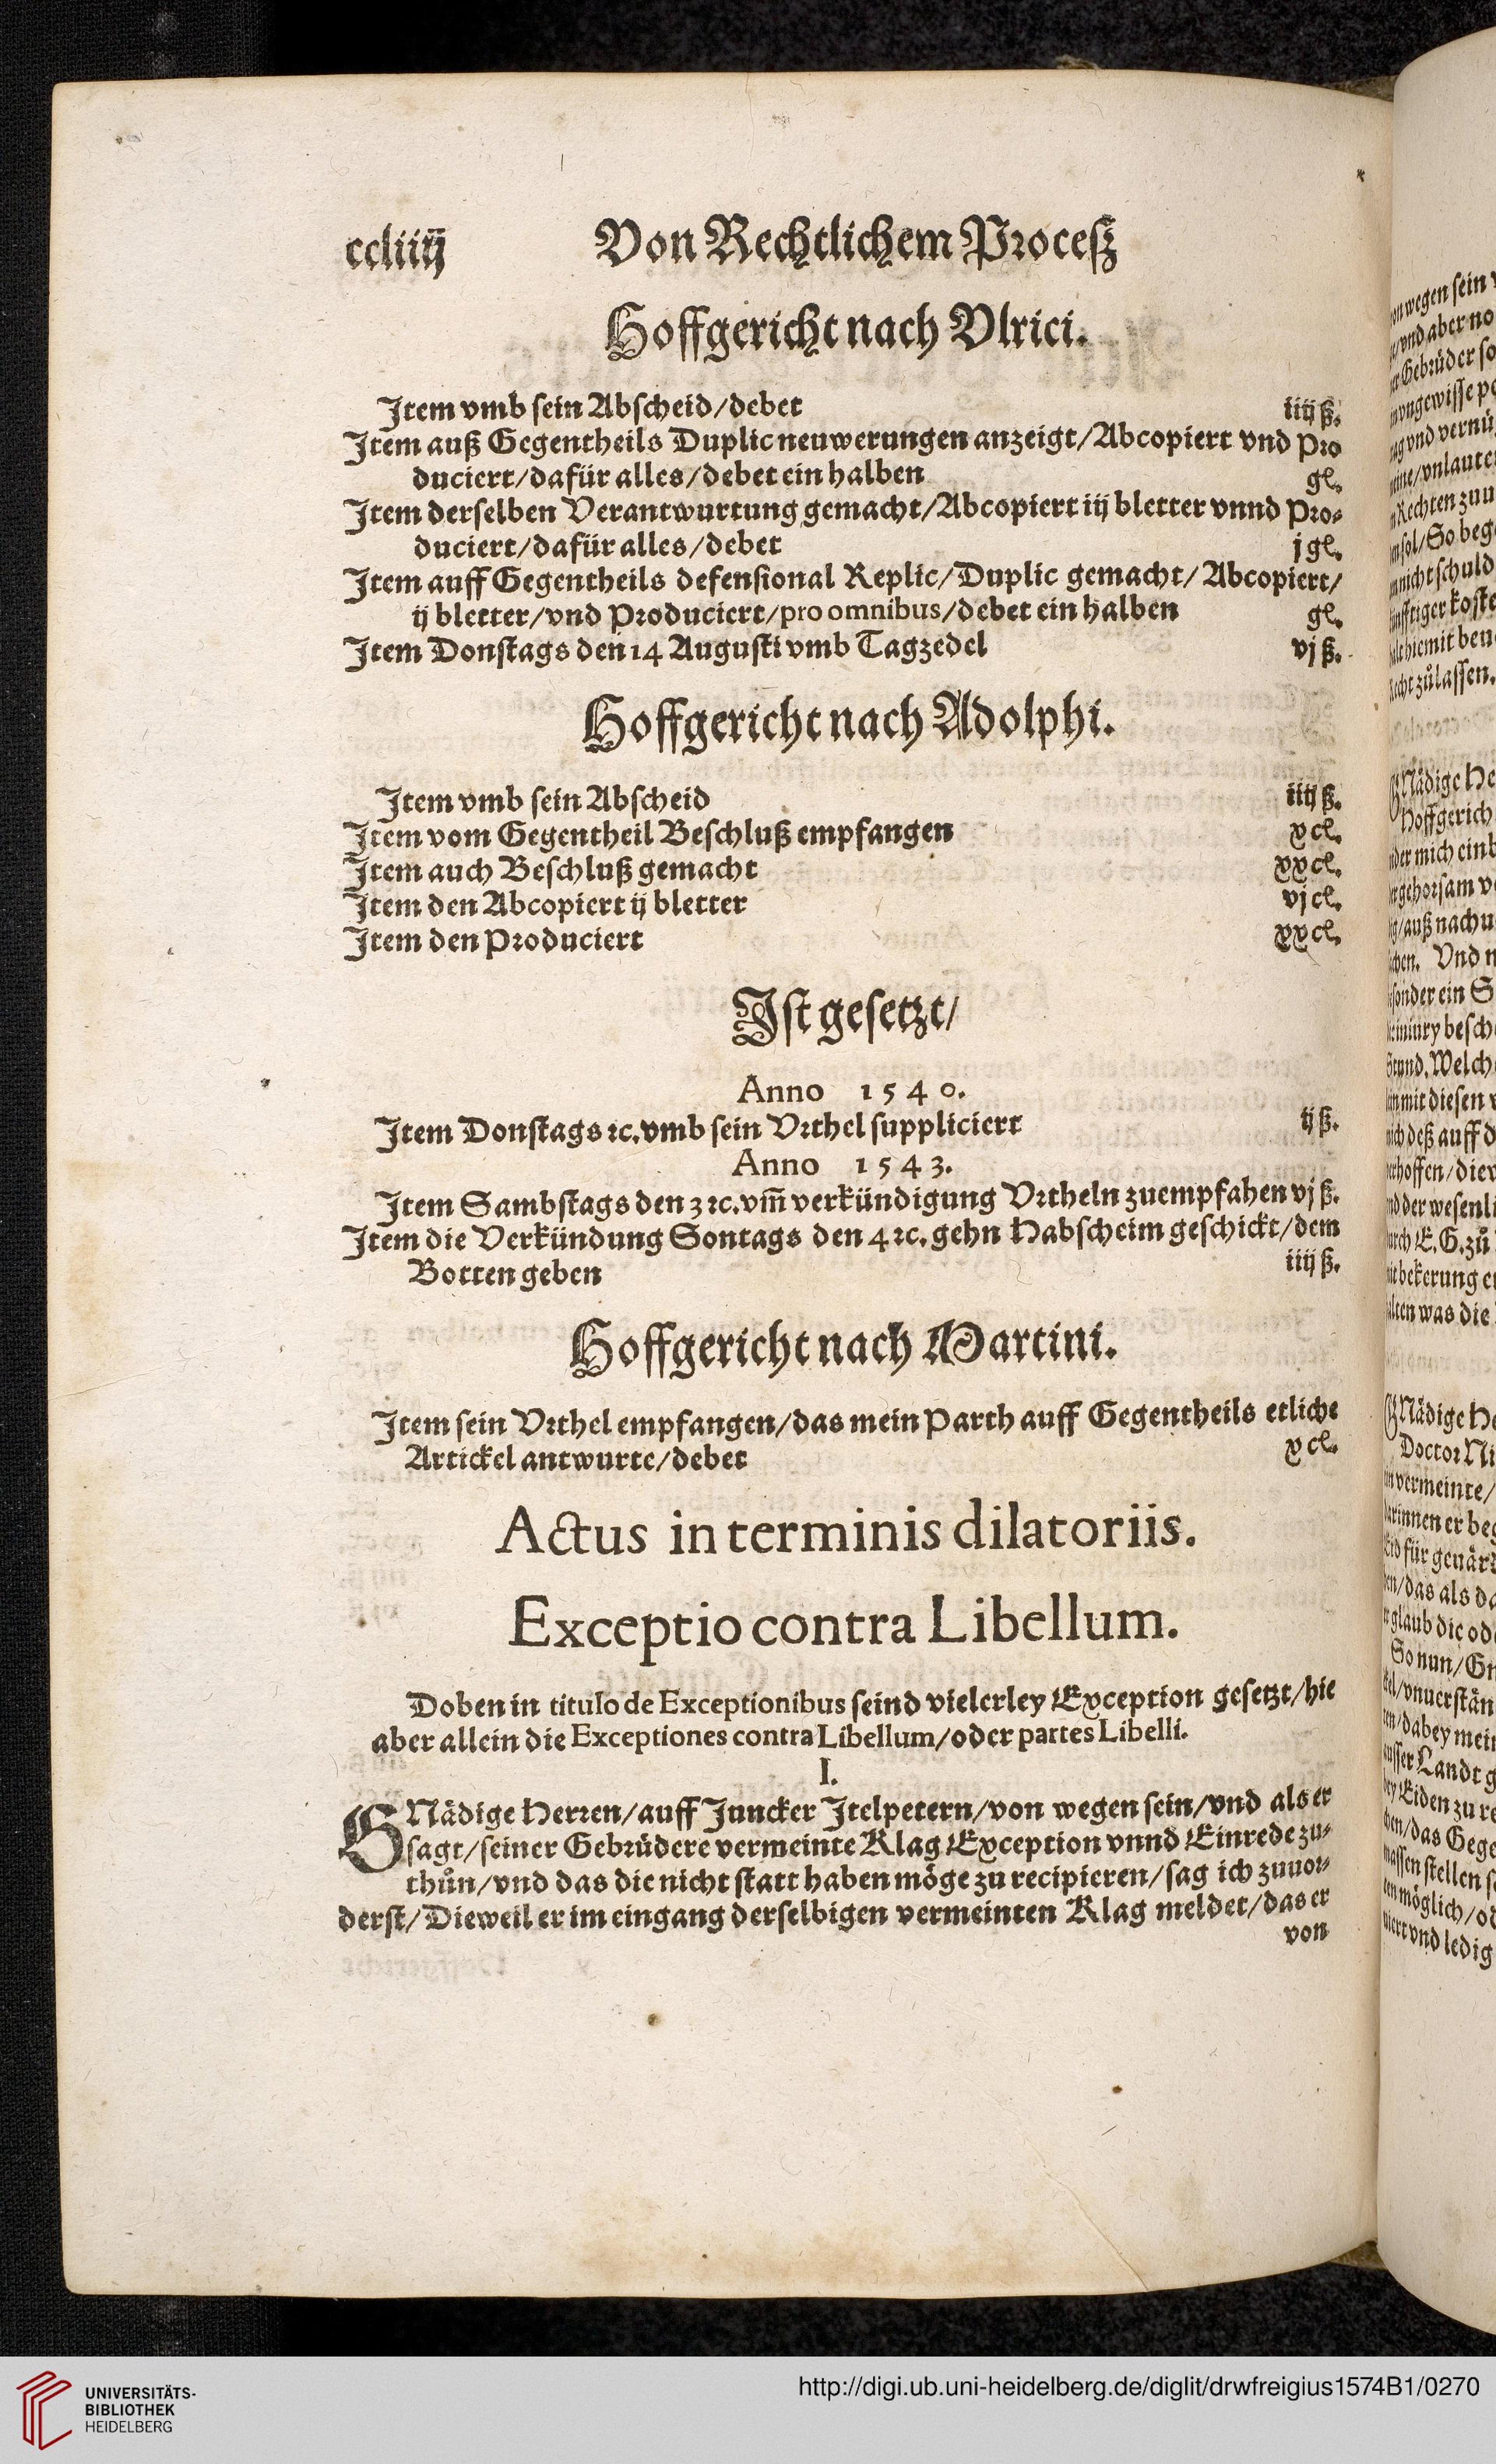 ccliiij Von Rechtlichem Proceſz
Hoffgericht nach Vlrici.
Item vmb ſein Abſcheid/debet iiij ß.
Item auß Gegentheils Duplic neuwerungen anzeigt/Abcopiert vnd Pro
duciert/dafür alles/debet ein halben gl.
Item derſelben Verantwurtung gemacht/Abcopiert iij bletter vnnd Pro⸗
duciert/dafür alles/debet j gl.
Item auff Gegentheils defenſional Replic/Duplic gemacht/Abcopiert/
ij bletter/vnd Produciert/pro omnibus/debet ein halben gl.
Item Donſtags den 14 Auguſti vmb Tagzedel vj ß.
Hoffgericht nach Adolphi.
Item vmb ſein Abſcheid iiij ß.
Item vom Gegentheil Beſchluß empfangen x cl.
Item auch Beſchluß gemacht xx cl.
Item den Abcopiert ij bletter vj cl.
Item den Produciert xx cl.
Iſt geſetzt/
Anno 1540.
Item Donſtags ꝛc. vmb ſein Vrthel ſuppliciert ij ß.
Anno 1543.
Item Sambſtags den 3 ꝛc. vm̃ verkündigung Vrtheln zuempfahen vj ß.
Item die Verkündung Sontags den 4 ꝛc. gehn Habſcheim geſchickt/dem
Botten geben iiij ß.
Hoffgericht nach Martini.
Item ſein Vrthel empfangen/das mein Parth auff Gegentheils etliche
Artickel antwurte/debet x cl.
Actus in terminis dilatoriis.
Exceptio contra Libellum.
Doben in titulo de Exceptionibus ſeind vielerley Exception geſetzt/hie
aber allein die Exceptiones contra Libellum/oder partes Libelli.
I.
GNädige Herren/auff Juncker Itelpetern/von wegen ſein/vnd als er
ſagt/ſeiner Gebrüdere vermeinte Klag Exception vnnd Einrede zu⸗
thůn/vnd das die nicht ſtatt haben möge zu recipieren/ſag ich zuuor⸗
derſt/Dieweil er im eingang derſelbigen vermeinten Klag meldet/das er
von
UNIVERSITÄTS-
BIBLIOTHEK
HEIDELBERG
http://digi.ub.uni-heidelberg.de/diglit/drwfreigius1574B1/0270